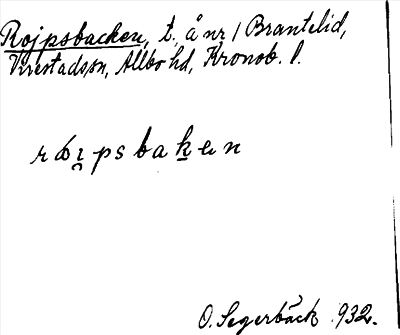 Rojpsbacken, t. å nr 1 Brantelid,
Virestadssn, Allbo hd, Kronob. l.
O. Segerbäck 1932.